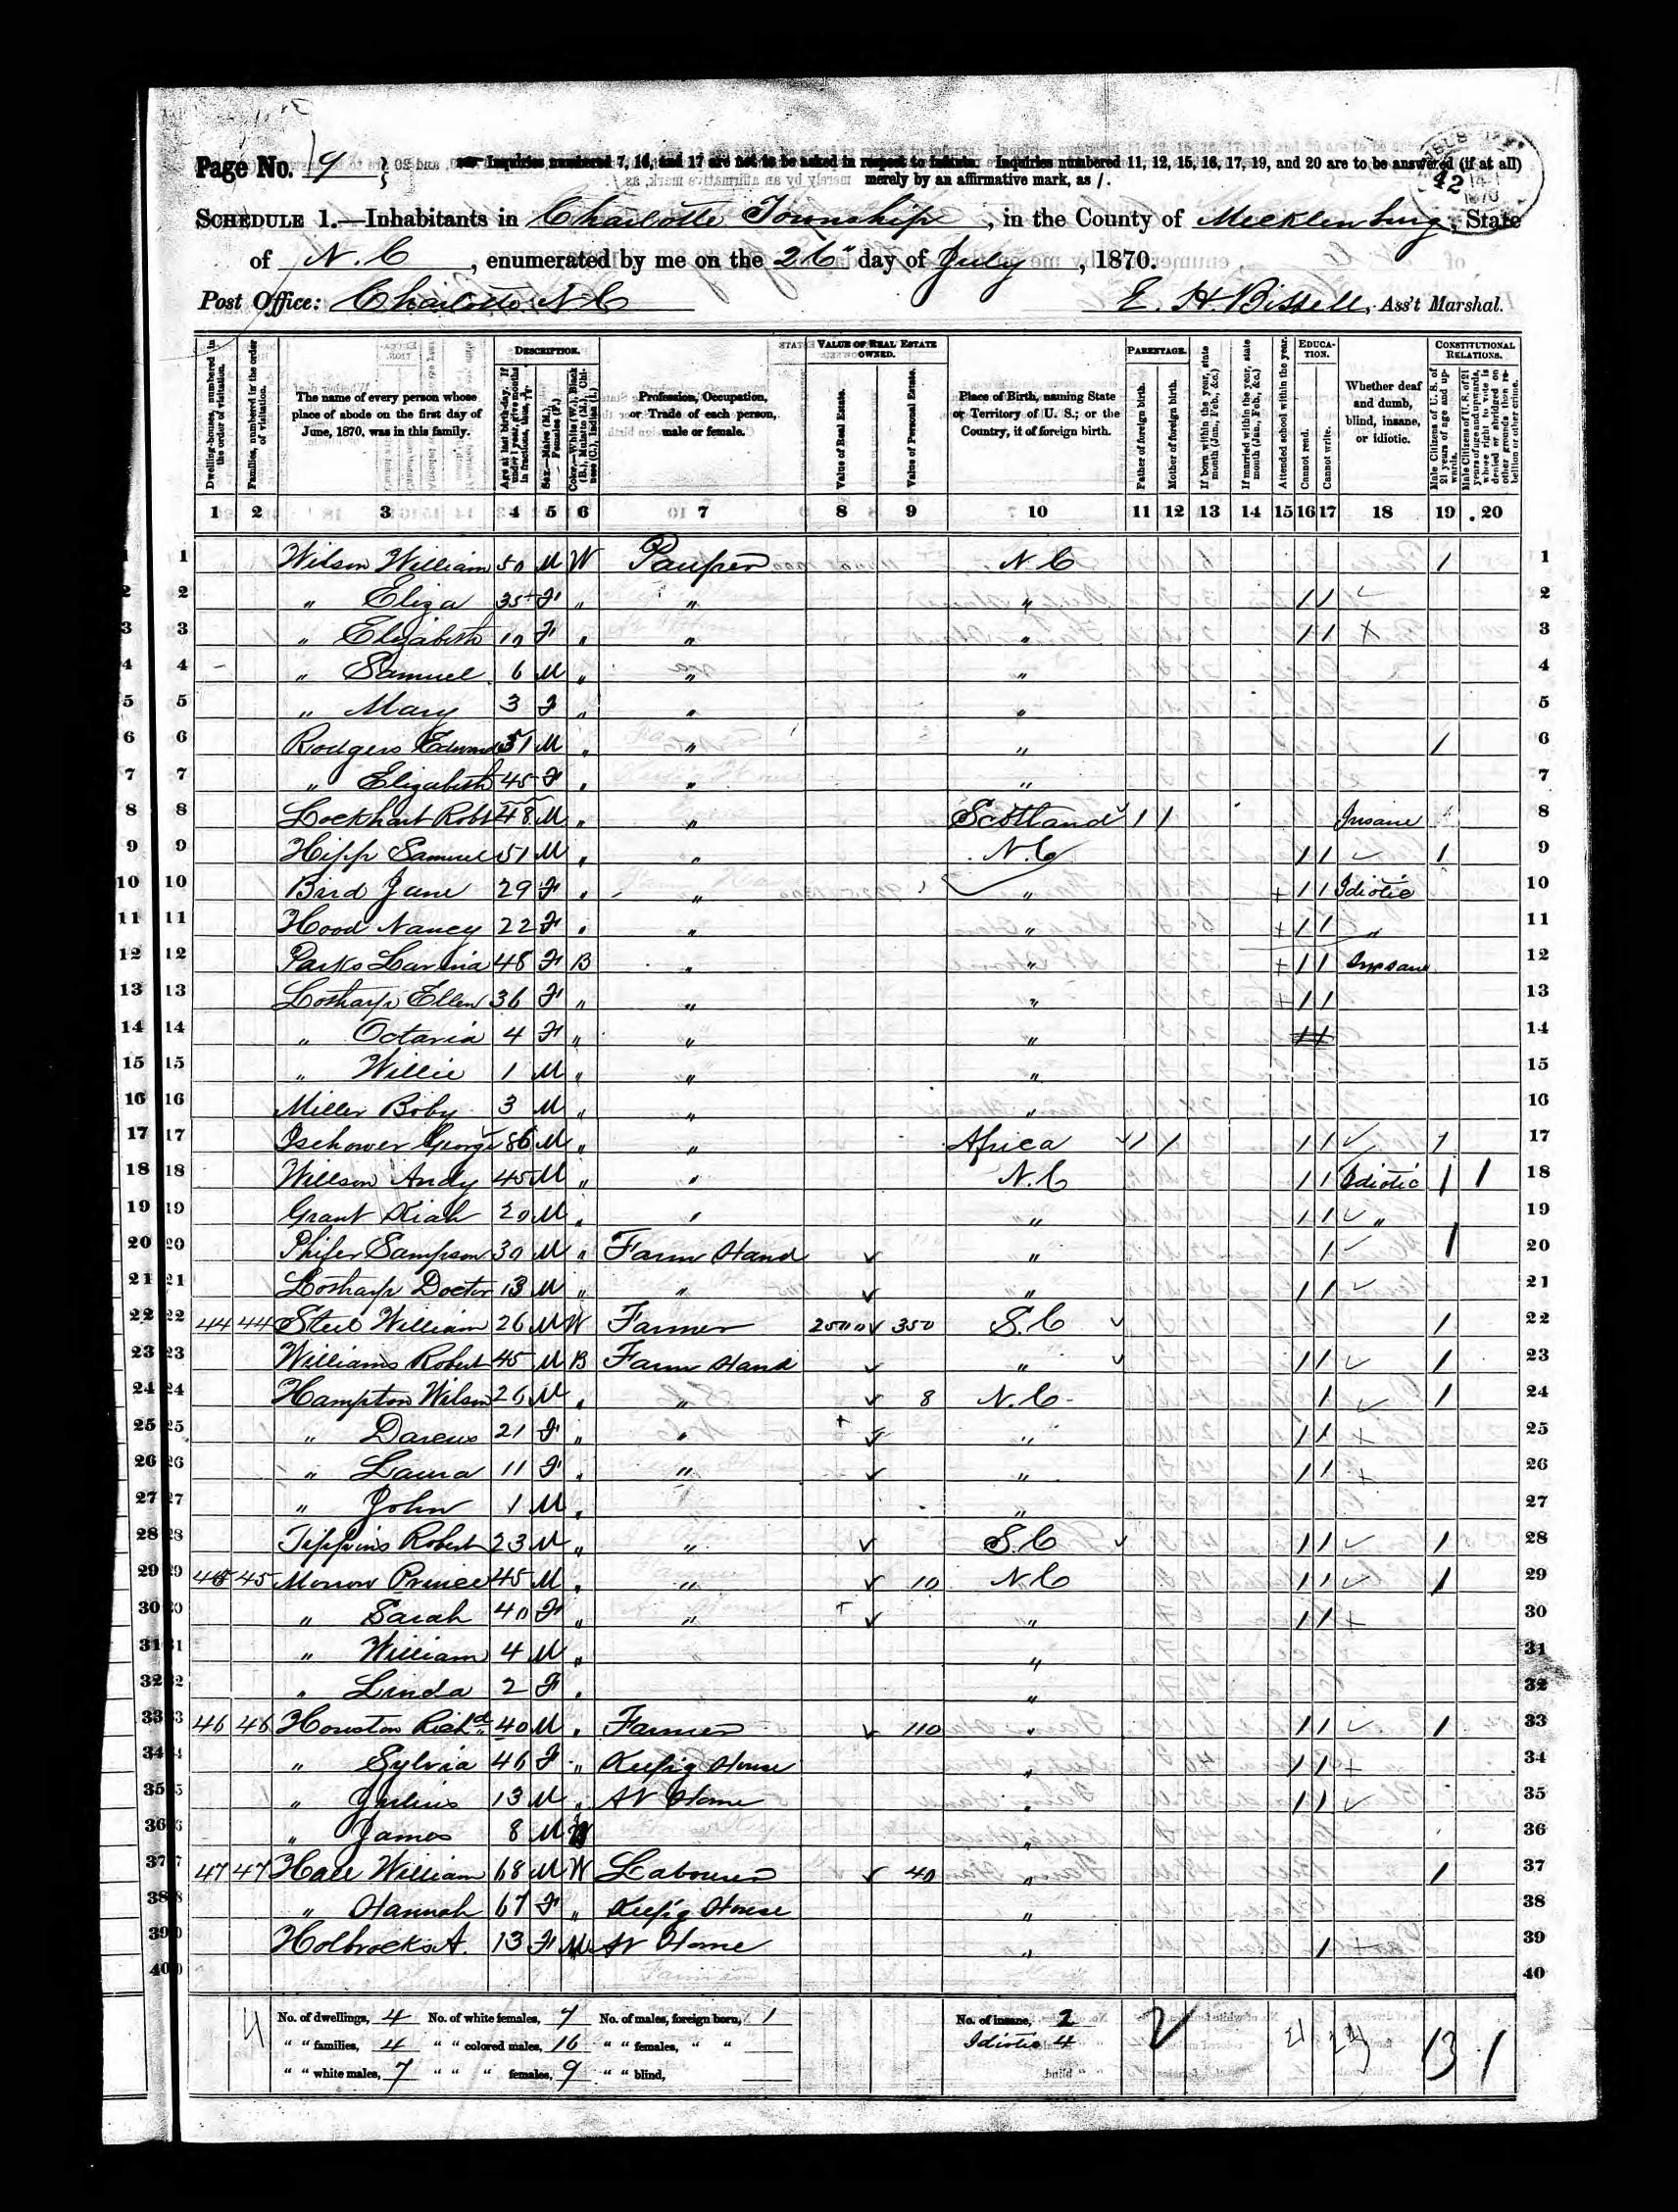 Page No. 9
Inquiries numbered 7, 16, and 17 are not to be asked in respect to infants. Inquiries numbered 11, 12, 15, 16, 17, 19, and 20 are to be answered (if at all)
merely by an affirmative mark, as /.
42
1870
SCHEDULE 1.—Inhabitants in Charlotte Township, in the County of Mecklenburg, State
of N. C, enumerated by me on the 26" day of July, 1870.
Post Office: Charlotte N C E. H. Bissell, Ass't Marshal.
DESCRIPTION. VALUE OF REAL ESTATE OWNED. PARENTAGE. EDUCATION. CONSTITUTIONAL RELATIONS.
Dwelling-houses, numbered in the order of visitation.
Families, numbered in the order of visitation.
The name of every person whose place of abode on the first day of June, 1870, was in this family.
Age at last birth-day. If under 1 year, give months in fractions, thus, 3/12
Sex.—Males (M.), Females (F.)
Color.—White (W.), Black (B.), Mulatto (M.), Chinese (C.), Indian (I.)
Profession, Occupation, or Trade of each person, male or female.
Value of Real Estate.
Value of Personal Estate.
Place of Birth, naming State or Territory of U. S.; or the Country, if of foreign birth.
Father of foreign birth.
Mother of foreign birth.
If born within the year, state month (Jan., Feb., &c.)
If married within the year, state month (Jan., Feb., &c.)
Attended school within the year.
Cannot read.
Cannot write.
Whether deaf and dumb, blind, insane, or idiotic.
Male Citizens of U. S. of 21 years of age and upwards.
Male Citizens of U. S. of 21 years of age and upwards, whose right to vote is denied or abridged on other grounds than rebellion or other crime.
1 2 3 4 5 6 7 8 9 10 11 12 13 14 15 16 17 18 19 20
1 Wilson William 50 M W Pauper N C / 1
2 " Eliza 35 F " " " / / 2
3 " Elizabeth 10 F " " " / / 3
4 " Samuel 6 M " " " 4
5 " Mary 3 F " " " 5
6 Rodgers Edward 51 M " " " / 6
7 " Elizabeth 45 F " " " 7
8 Lockhart Robt 48 M " " Scotland / / Insane 8
9 Hipp Samuel 51 M " " N. C / / / 9
10 Bird Jane 29 F " " " / / Idiotic 10
11 Hood Nancy 22 F " " " / / " 11
12 Parks Lavinia 48 F B " " / / Insane 12
13 Losharp Ellen 36 F " " " / / 13
14 " Octavia 4 F " " " 14
15 " Willie 1 M " " " 15
16 Miller Boby 3 M " " " 16
17 George 86 M " " Africa / / / / / 17
18 Willson Andy 45 M " " N. C / / Idiotic / / 18
19 Grant Kiah 20 M " " " / / " 19
20 Phifer Sampson 30 M " Farm Hand " / / 20
21 Losharp Doctor 13 M " " " / / 21
22 44 44 William 26 M W Farmer 2500 350 S. C / 22
23 Williams Robert 45 M B Farm Hand " / / / 23
24 Hampton Wilson 26 M " " 8 N. C / / 24
25 " Darcus 21 F " " " / / 25
26 " Laura 11 F " " " / / 26
27 " John 1 M " " 27
28 Tippins Robert 23 M " " S. C / / / 28
29 45 45 Morrow Prince 45 M " " 10 N C / / / 29
30 " Sarah 40 F " " " / / 30
31 " William 4 M " " 31
32 " Linda 2 F " " 32
33 46 46 Houston Richd 40 M " Farmer 110 " / / / 33
34 " Sylvia 46 F " Keepig House " / / 34
35 " Julius 13 M " At Home " / / 35
36 " James 8 M " 36
37 47 47 Hall William 68 M W Labourer 40 " / 37
38 " Hannah 67 F " Keepig House " 38
39 Holbrooks A. 13 F M At Home " / 39
40 40
No. of dwellings, 4 No. of white females, 7 No. of males, foreign born, 1 No. of insane, 2
" " families, 4 " " colored males, 16 " " females, " " Idiotic 4
" " white males, 7 " " " females, 9 " " blind,
2 21 24 13 1